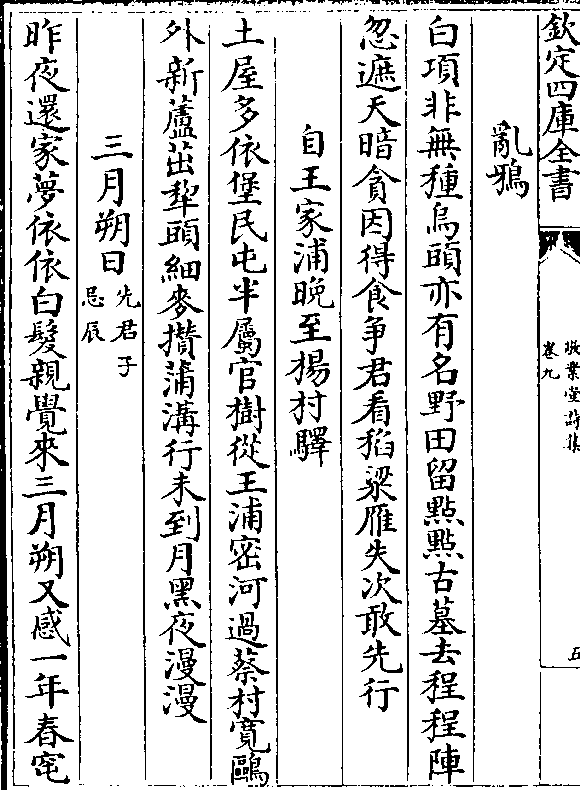 欽定四庫全書
敬業堂詩集
卷九
五
亂鴉
白項非無種烏頭亦有名野田留點點古墓去程程陣
忽遮天暗貪因得食爭君看稻粱雁失次敢先行
自王家浦晚至楊村驛
土屋多依堡民屯半屬官樹從王浦密河過蔡村寛鷗
外新蘆茁犂頭細麥攢蒲溝行未到月黑夜漫漫
三月朔日先君子
忌辰
昨夜還家夢依依白髮親覺來三月朔又感一年春窀